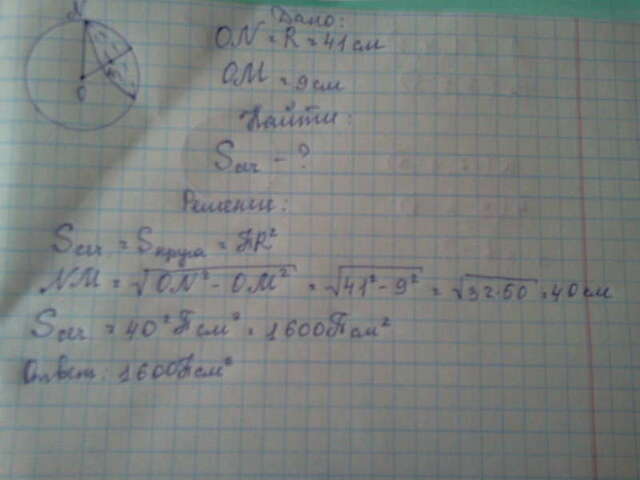 N
O
Дано:
ON = R = 41 см
OM = 9 см
Найти:
Sсеч - ?
Решение:
Sсеч = Sкруга = ПR²
NM = √ON² - OM² = √41² - 9² = √32·50 = 40 см
Sсеч = 40²П см² = 1600П см²
Ответ: 1600П см²